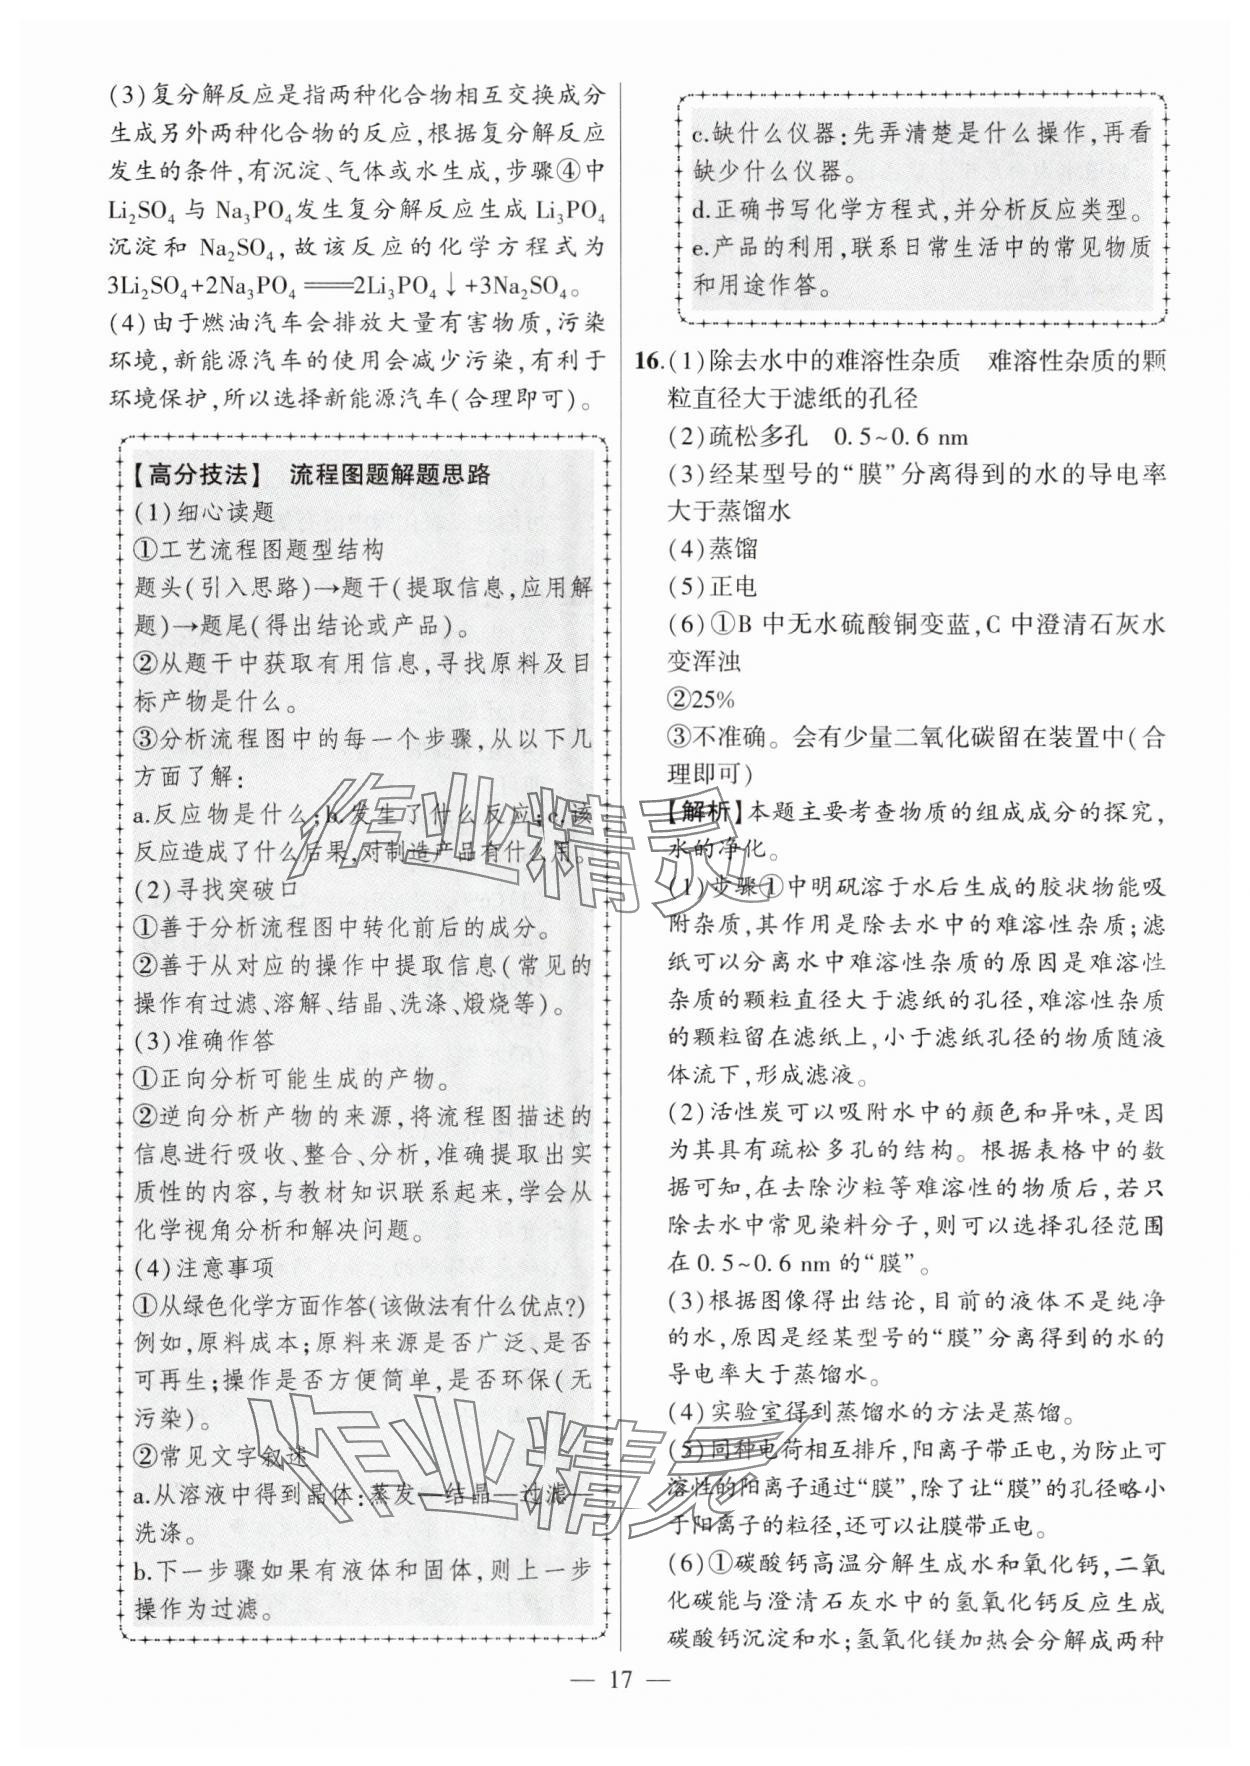 (3)复分解反应是指两种化合物相互交换成分
生成另外两种化合物的反应,根据复分解反应
发生的条件,有沉淀、气体或水生成,步骤④中
Li₂SO₄ 与 Na₃PO₄发生复分解反应生成 Li₃PO₄
沉淀和 Na₂SO₄,故该反应的化学方程式为
3Li₂SO₄+2Na₃PO₄ ══2Li₃PO₄↓+3Na₂SO₄。
(4)由于燃油汽车会排放大量有害物质,污染
环境,新能源汽车的使用会减少污染,有利于
环境保护,所以选择新能源汽车(合理即可)。
【高分技法】 流程图题解题思路
(1)细心读题
①工艺流程图题型结构
题头(引入思路)→题干(提取信息,应用解
题)→题尾(得出结论或产品)。
②从题干中获取有用信息,寻找原料及目
标产物是什么。
③分析流程图中的每一个步骤,从以下几
方面了解:
a.反应物是什么;b.发生了什么反应;c.该
反应造成了什么后果,对制造产品有什么用。
(2)寻找突破口
①善于分析流程图中转化前后的成分。
②善于从对应的操作中提取信息(常见的
操作有过滤、溶解、结晶、洗涤、煅烧等)。
(3)准确作答
①正向分析可能生成的产物。
②逆向分析产物的来源,将流程图描述的
信息进行吸收、整合、分析,准确提取出实
质性的内容,与教材知识联系起来,学会从
化学视角分析和解决问题。
(4)注意事项
①从绿色化学方面作答(该做法有什么优点?)
例如,原料成本;原料来源是否广泛、是否
可再生;操作是否方便简单,是否环保(无
污染)。
②常见文字叙述
a.从溶液中得到晶体:蒸发—结晶—过滤—
洗涤。
b.下一步骤如果有液体和固体,则上一步
操作为过滤。
c.缺什么仪器:先弄清楚是什么操作,再看
缺少什么仪器。
d.正确书写化学方程式,并分析反应类型。
e.产品的利用,联系日常生活中的常见物质
和用途作答。
16.(1)除去水中的难溶性杂质 难溶性杂质的颗
粒直径大于滤纸的孔径
(2)疏松多孔 0.5~0.6 nm
(3)经某型号的“膜”分离得到的水的导电率
大于蒸馏水
(4)蒸馏
(5)正电
(6)①B 中无水硫酸铜变蓝,C 中澄清石灰水
变浑浊
②25%
③不准确。会有少量二氧化碳留在装置中(合
理即可)
【解析】本题主要考查物质的组成成分的探究,
水的净化。
(1)步骤①中明矾溶于水后生成的胶状物能吸
附杂质,其作用是除去水中的难溶性杂质;滤
纸可以分离水中难溶性杂质的原因是难溶性
杂质的颗粒直径大于滤纸的孔径,难溶性杂质
的颗粒留在滤纸上,小于滤纸孔径的物质随液
体流下,形成滤液。
(2)活性炭可以吸附水中的颜色和异味,是因
为其具有疏松多孔的结构。根据表格中的数
据可知,在去除沙粒等难溶性的物质后,若只
除去水中常见染料分子,则可以选择孔径范围
在 0.5~0.6 nm 的“膜”。
(3)根据图像得出结论,目前的液体不是纯净
的水,原因是经某型号的“膜”分离得到的水的
导电率大于蒸馏水。
(4)实验室得到蒸馏水的方法是蒸馏。
(5)同种电荷相互排斥,阳离子带正电,为防止可
溶性的阳离子通过“膜”,除了让“膜”的孔径略小
于阳离子的粒径,还可以让膜带正电。
(6)①碳酸钙高温分解生成水和氧化钙,二氧
化碳能与澄清石灰水中的氢氧化钙反应生成
碳酸钙沉淀和水;氢氧化镁加热会分解成两种
— 17 —
作业精灵
作业精灵